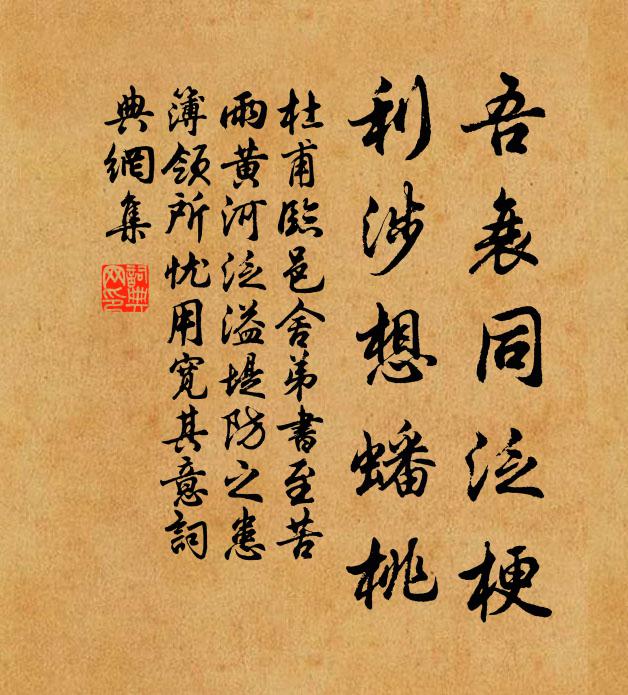 吾衰同泛梗
利涉想蟠桃
杜甫臨邑舍弟書至苦
雨黃河泛溢堤防之患
簿領所忧用寬其意詞
典網集
詞典
网印